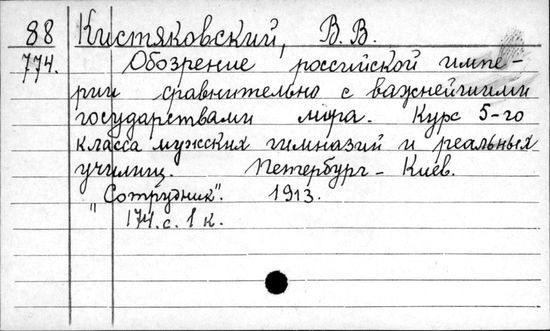 88 Кистяковский, В.В.
774. Обозрение российской импе-
рии сравнительно с важнейшими
государствами мира. Курс 5-го
класса мужских гимназий и реальных
училищ. Петербург - Киев.
"Сотрудник". 1913.
174.с. 1 к.